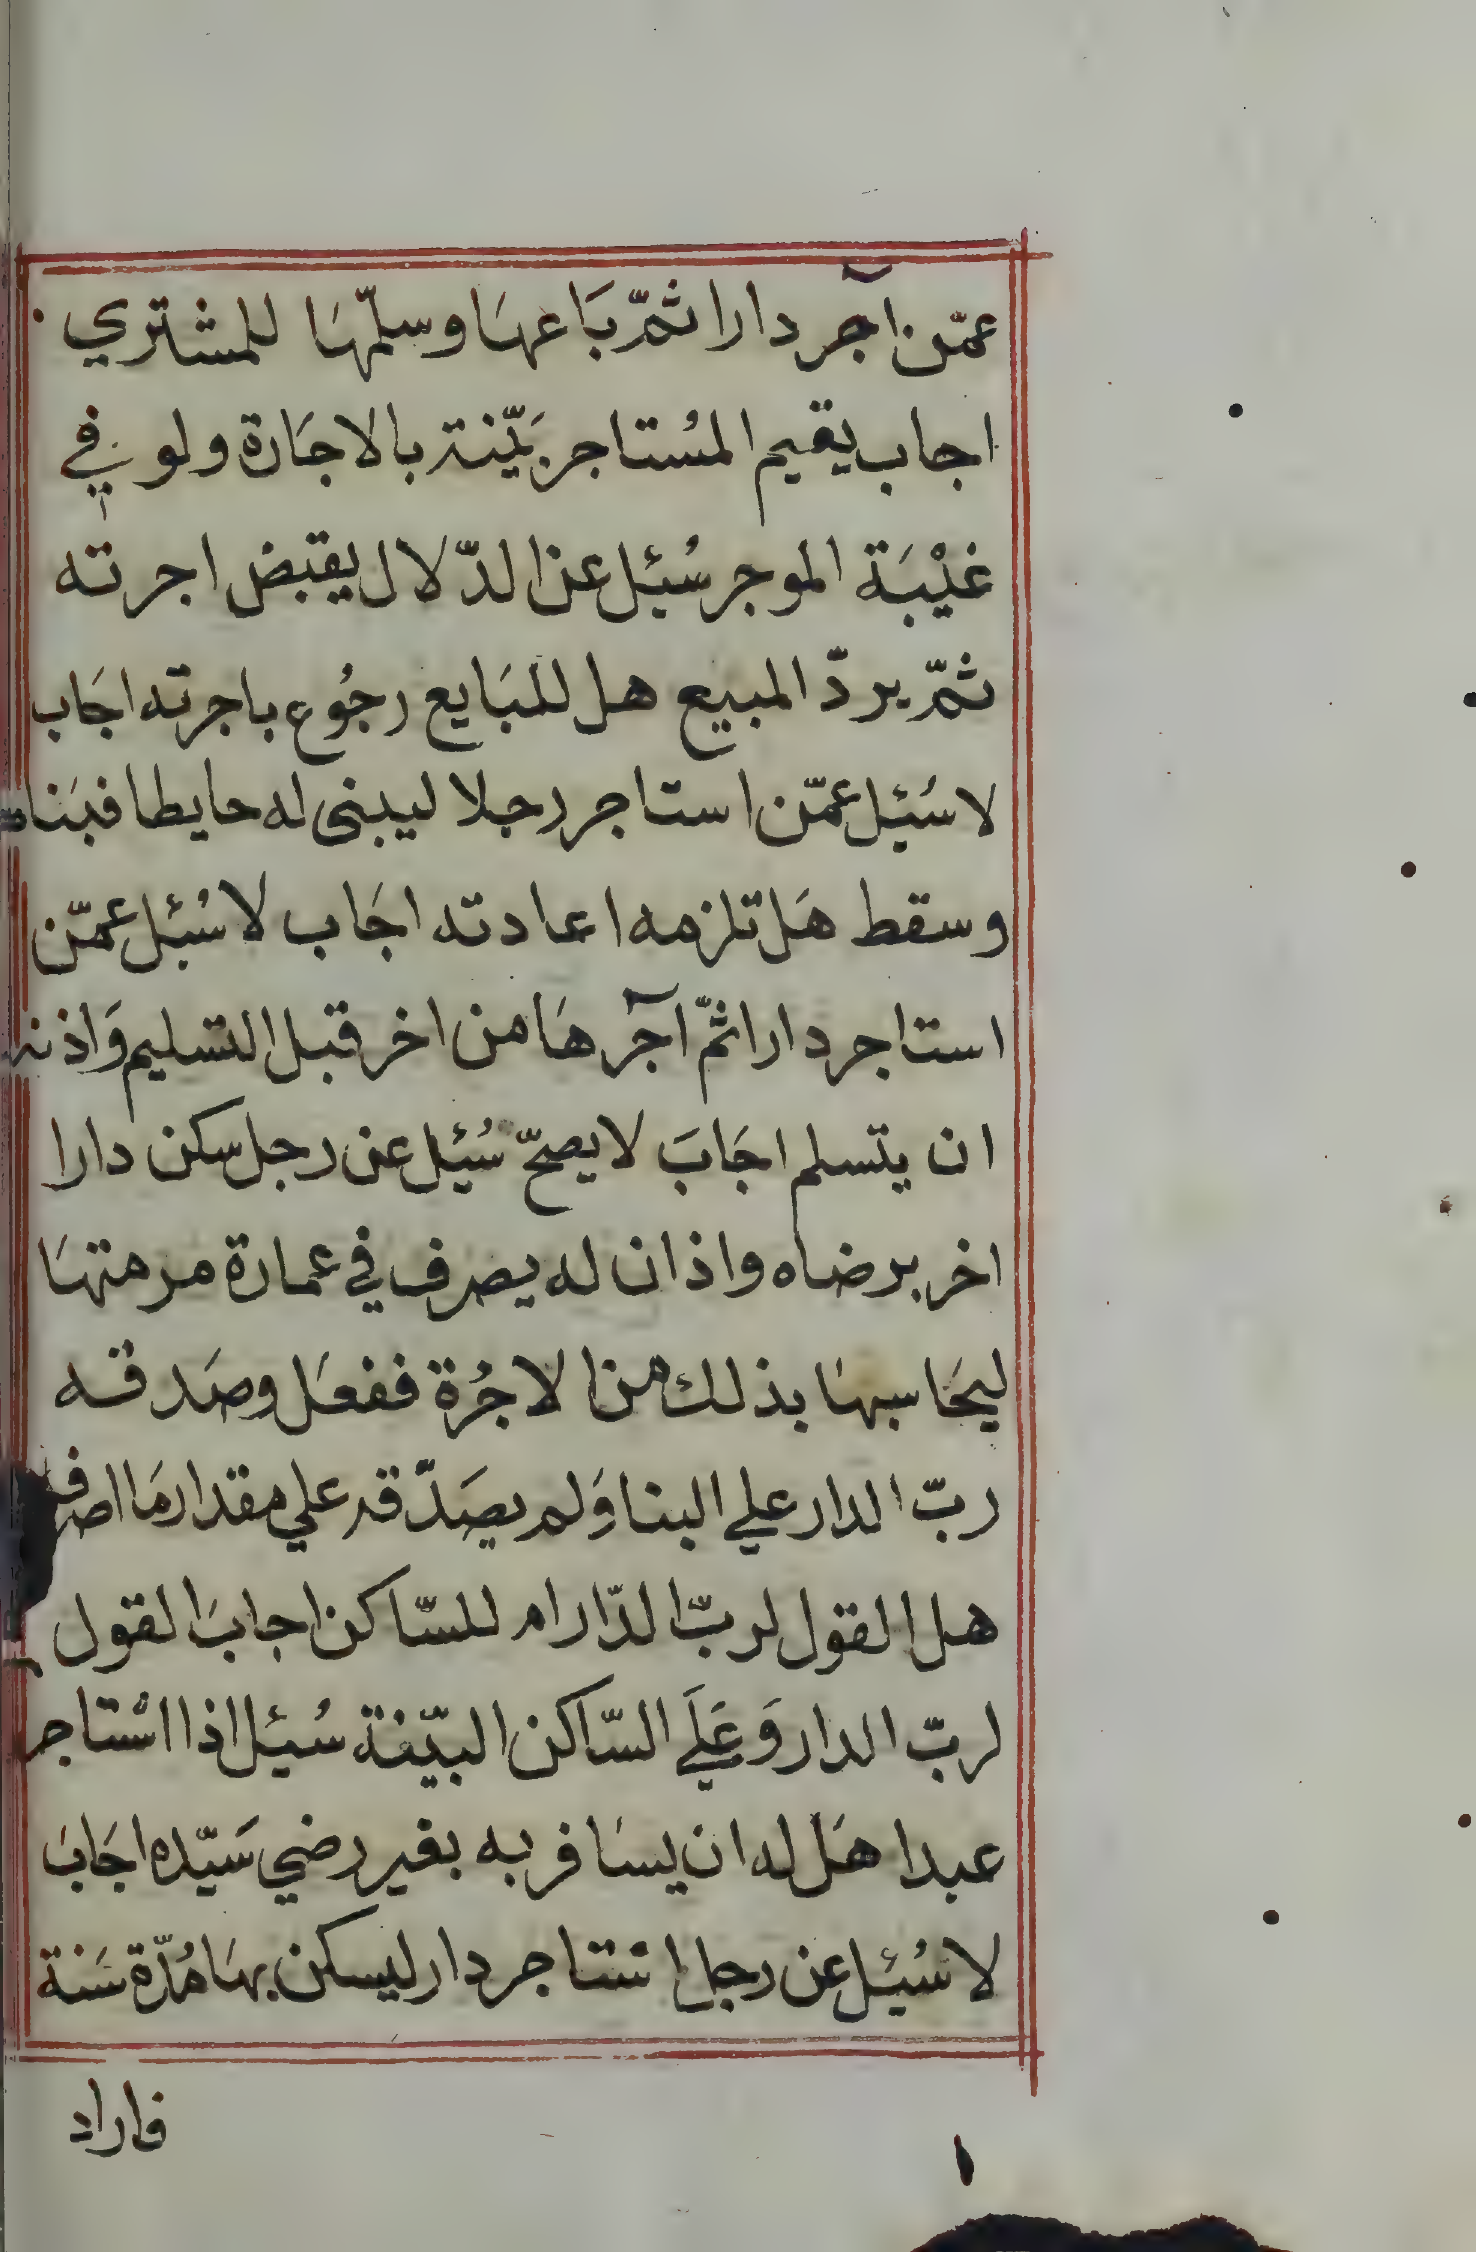 عمّن اآجر دارا ثمّ بَاعهَا وسلّمهَا للمشتري
اجاب يقيم المسُتاجر بَيّنة بالاجَارة ولو في
غيْبَة الموجر سُئِل عن الدّلال يقبض اجرته
ثمّ يردّ المبيع هل للبَايع رجُوع باجرته اجَاب
لا سُئِل عمّن استاجر رجلا ليبنى له حايطا فبَناه
وسقط هَل تلزمه اعادته اجَاب لا سُئِل عمّن
استاجر دارا ثمّ آجرهَا من اخر قبل التسليم وَاذنه
ان يتسلم اجَابَ لا يصحّ سُئِل عن رجل سكن دارا
اخر برضاه واذان له يصرف في عمارة مرمتهَا
ليحَاسبهَا بذلك من الاجُرة ففعَل وصَدقه
ربّ الدار علي البنا وَلم يصَدّقه علي مقدار مَا اصرف
هل القول لربّ الدّار ام للسّاكن اجابَ القول
لربّ الدار وَعَلَي السّاكن البيّنة سُئِل اذا استاجر
عبدا هَل له ان يسَافر به بغير رضي سَيّده اجَابَ
لا سُئِل عن رجل استاجر دار ليسكن بهَا مُدّة سَنة
فاراد